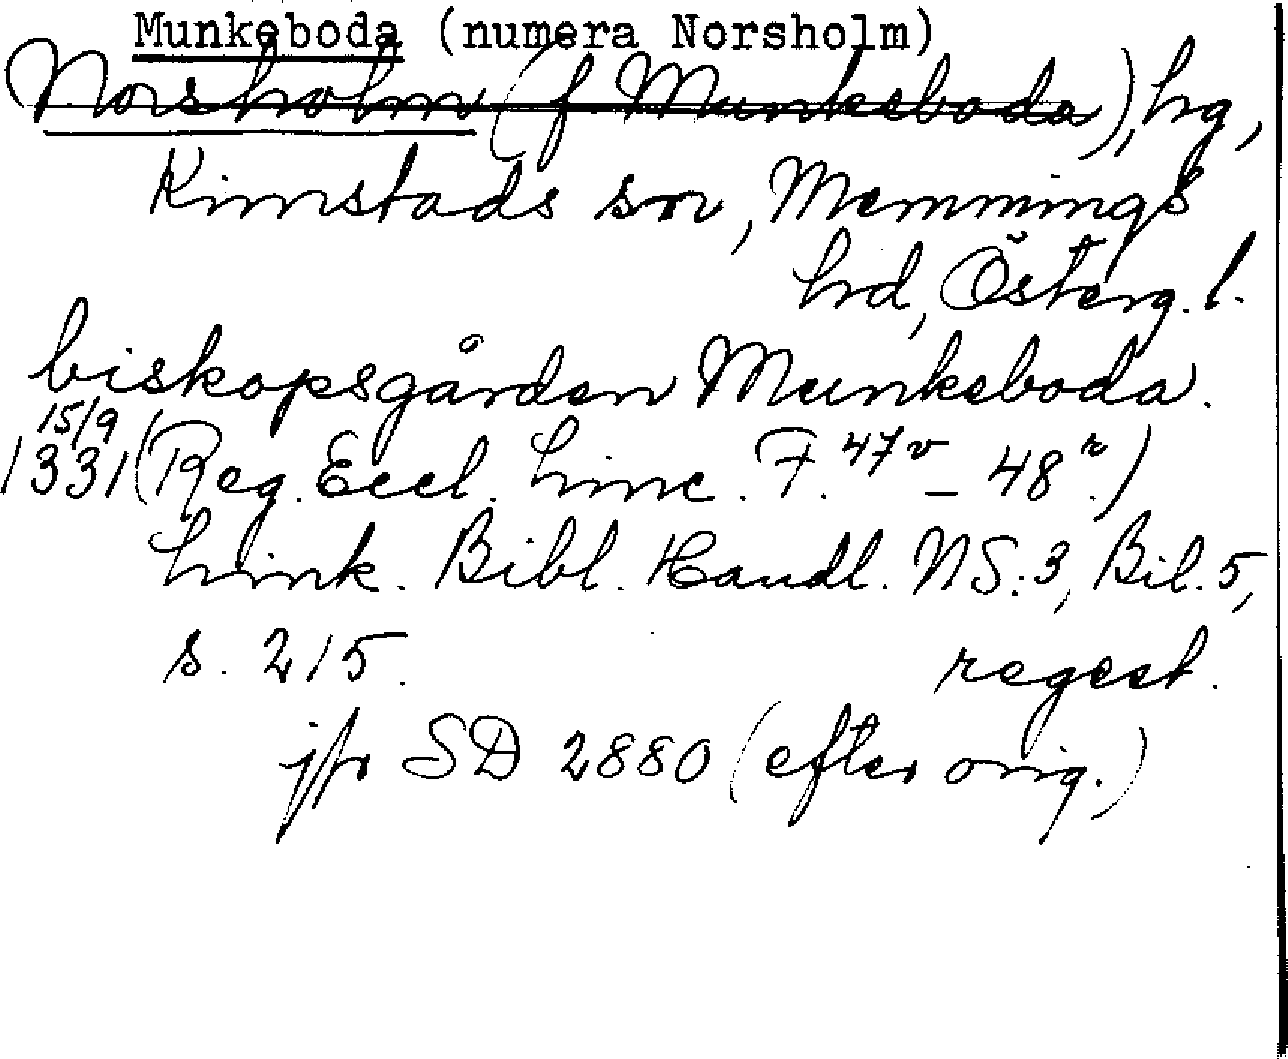 Munkeboda (numera Norsholm)
Norsholm (f Munkeboda), hg,
Kimstads sn, Memmings
hd, Österg. l.
biskopsgården Munkeboda.
15/9
1331 (Reg. Eccl. Linc. F. 47v – 48r.)
Link. Bibl. Handl. NS:3, Bil. 5,
s. 215. regest.
jfr SD 2880 (efter orig.)